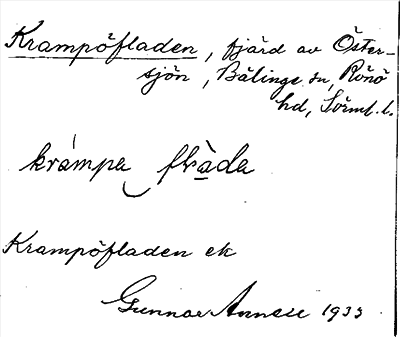 Krampöfladen, fjärd av Öster-
sjön, Bälinge sn, Rönö
hd, Sörml. l.
krámpa flàda
Krampöfladen ek
Gunnar 1933